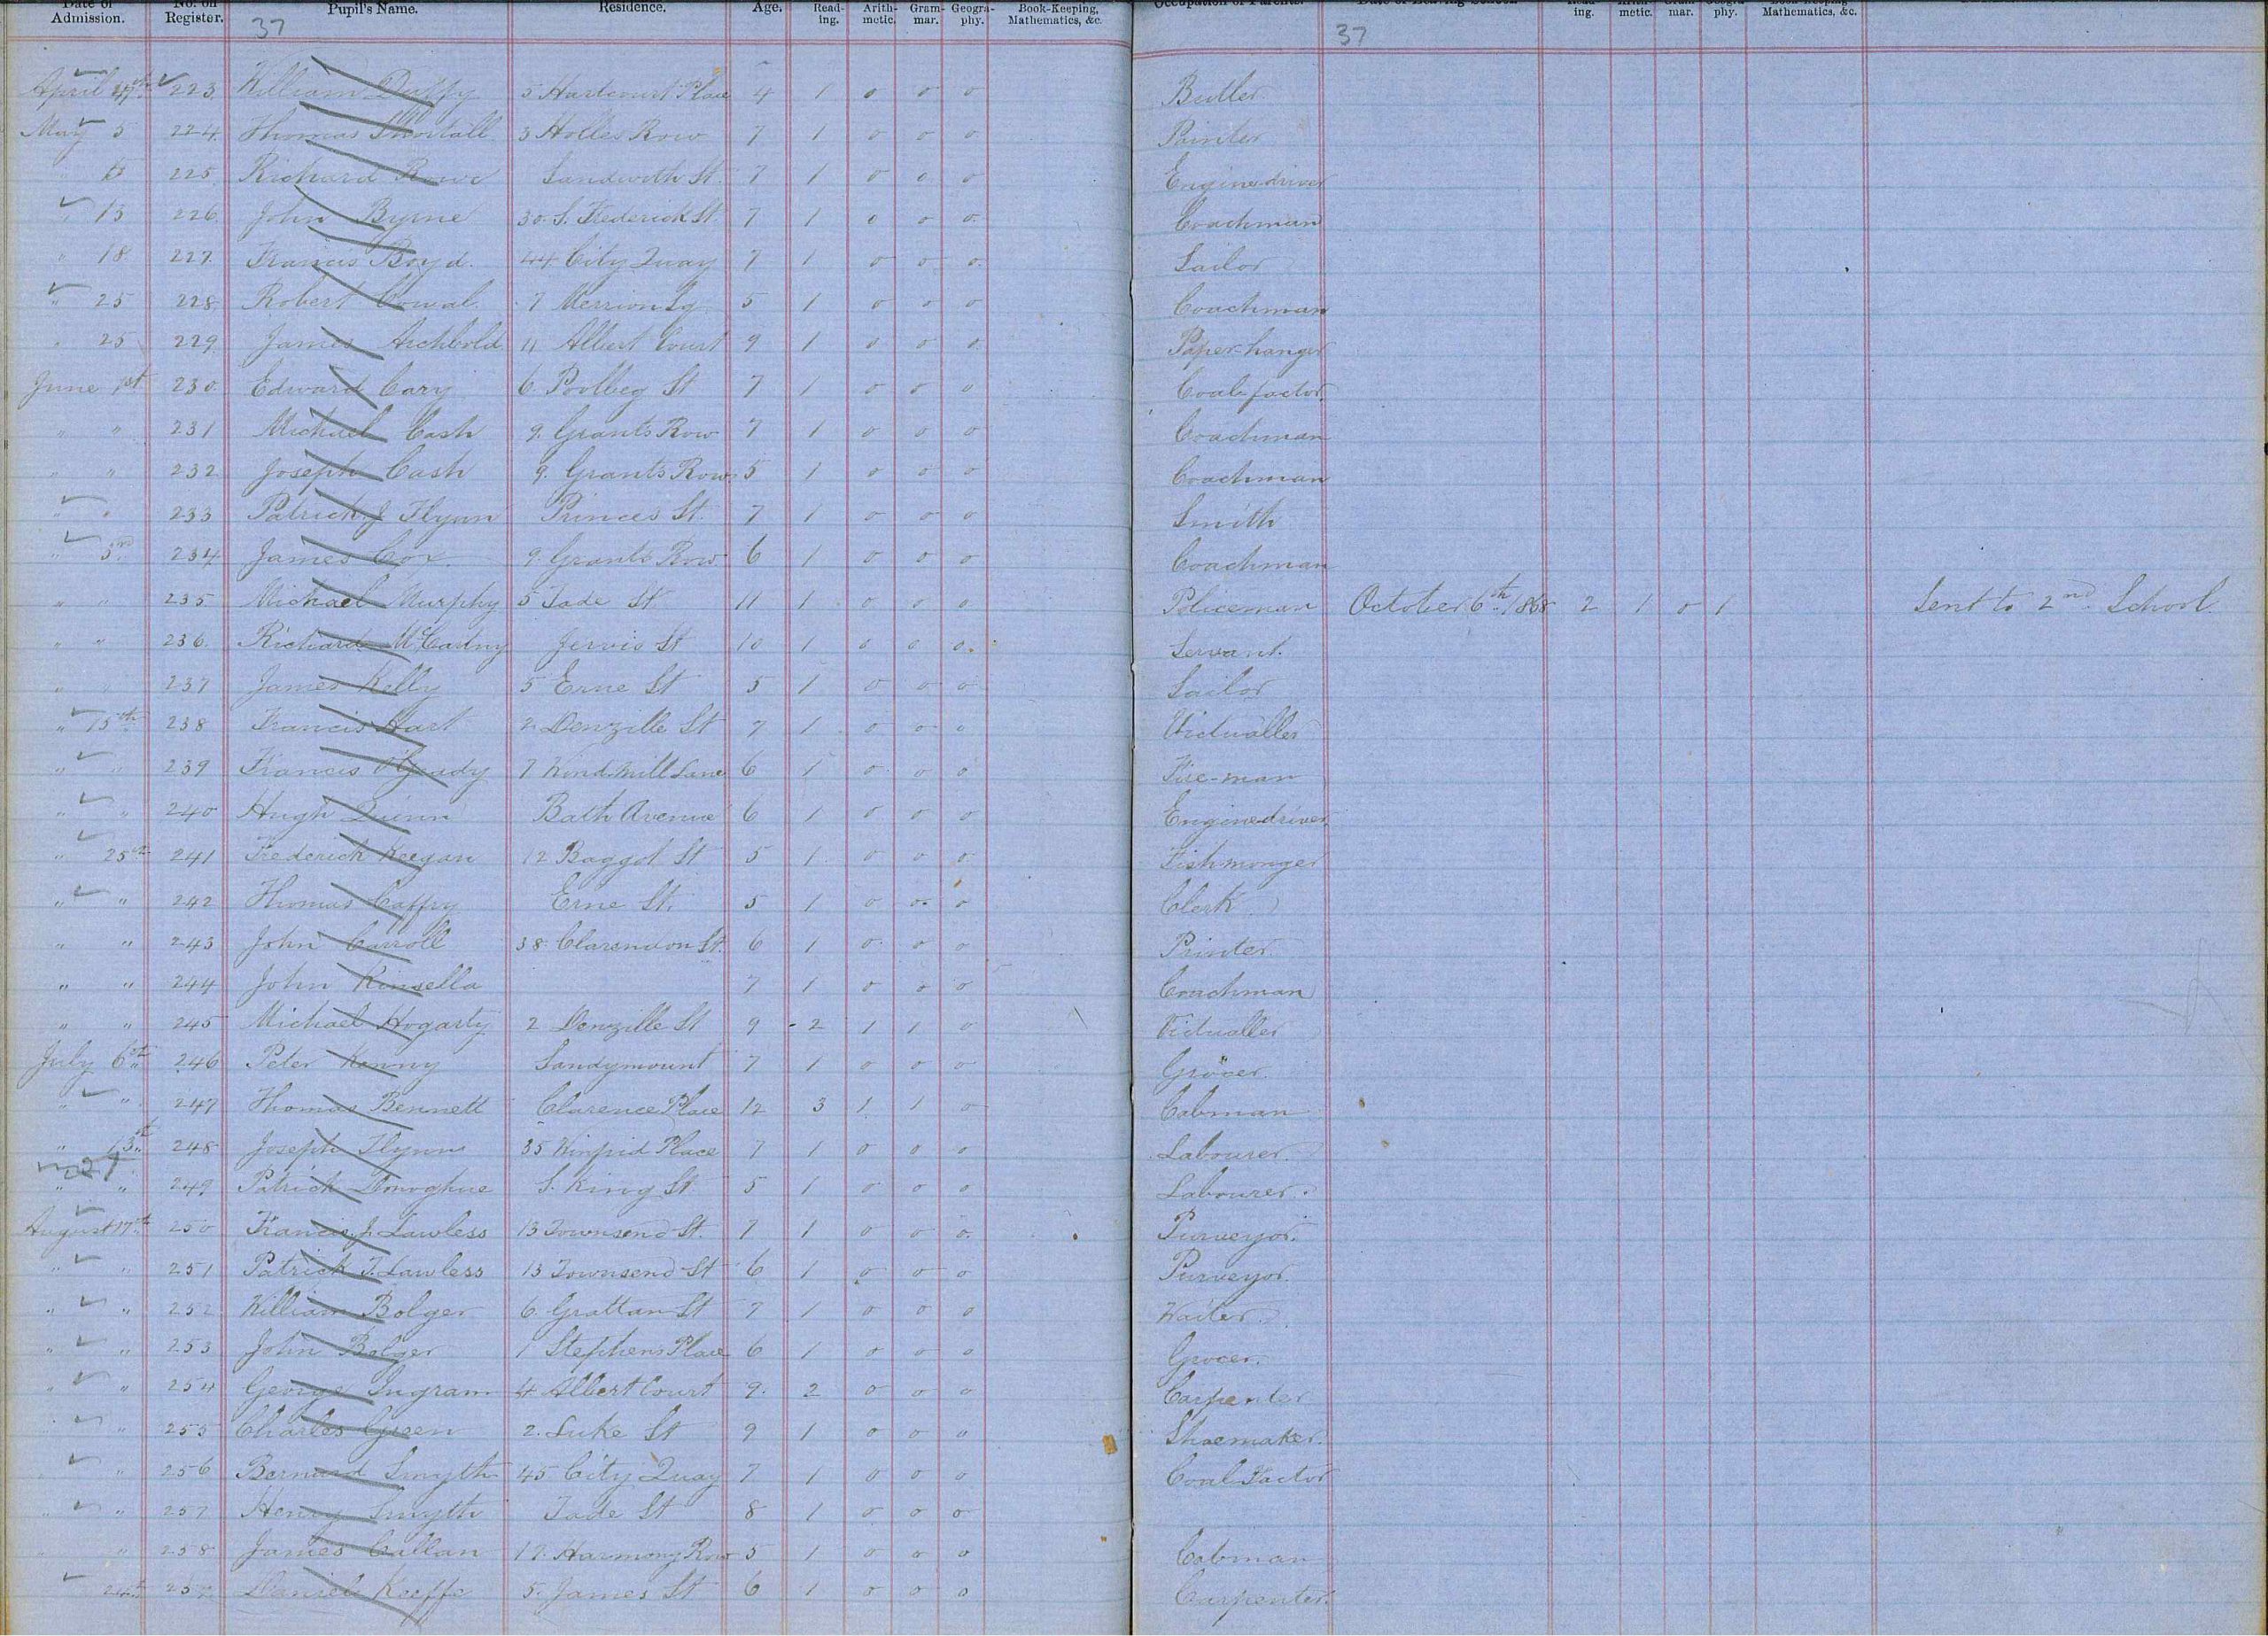 Date of Admission. No. on Register. Pupil's Name. Residence. Age. Read-ing. Arith-metic. Gram-mar. Geogra-phy. Book-Keeping, Mathematics, &c. Occupation of Parents. Date of Leaving School Read-ing. Arith-metic. Gram-mar. Geogra-phy. Book-Keeping Mathematics, &c.
37 37
April 27th 223 William Duffy 5 Harcourt Place 4 1 0 0 0 Butler
May 5 224 Thomas Shortall 3 Holles Row 7 1 0 0 0 Painter
" 225 Richard Rowe Sandwith St. 7 1 0 0 0 Enginedriver
" 13 226 John Byrne 30 S. Frederick St. 7 1 0 0 0 Coachman
" 18 227 Francis Boyd. 44 City Quay 7 1 0 0 0 Sailor
" 25 228 Robert Cowal 7 Merrion Sq 5 1 0 0 0 Coachman
" 25 229 James Archbold 11 Albert Court 9 1 0 0 0 Paper-hanger
June 1st 230 Edward Cary 6. Poolbeg St 7 1 0 0 0 Coal factor
" " 231 Michael Cash 9. Grants Row 7 1 0 0 0 Coachman
" " 232 Joseph Cash 9. Grants Row 5 1 0 0 0 Coachman
" " 233 Patrick J Flynn Princes St. 7 1 0 0 0 Smith
" 3rd 234 James Cox 9. Grants Row 6 1 0 0 0 Coachman
" " 235 Michael Murphy 5 Jade St 11 1 0 0 0 Policeman October 6th 1868 2 1 0 1 Sent to 2nd School
" " 236. Richard McCartny Jervis St 10 1 0 0 0. Servant.
" 237 James Kelly 5 Erne St 5 1 0 0 0 Sailor
" 15th 238 Francis Hart 2 Denzille St 7 1 0 0 0 Victualler
" " 239 Francis O'Grady 7 Windmill Lane 6 1 0 0 0 Fire-man
" " 240 Hugh Quinn Bath Avenue 6 1 0 0 0 Enginedriver
" 25th 241 Frederick Keegan 12 Baggot St 5 1 0 0 0 Fishmonger
" " 242 Thomas Caffry Erne St. 5 1 0 0 0 Clerk
" " 243 John Carroll 38 Clarendon St. 6 1 0 0 0 Printer
" " 244 John Kinsella 7 1 0 0 0 Coachman
" " 245 Michael Hogarty 2 Denzille St 9 2 1 1 0 Victualler
July 6th 246 Peter Kenny Sandymount 7 1 0 0 0 Grocer
" " 247 Thomas Bennett Clarence Place 12 3 1 1 0 Cabman
" 13th 248 Joseph Flynn 35 Place 7 1 0 0 0 Labourer
" " 249 Patrick Donoghue S. King St 5 1 0 0 0 Labourer.
August 17th 250 Francis J. Lawless 13 Townsend St. 7 1 0 0 0. Purveyor.
" " 251 Patrick T. Lawless 13 Townsend St 6 1 0 0 0 Purveyor.
" " 252 William Bolger 6. Grattan St 7 1 0 0 0 Waiter
" " 253 John Bolger 1 Stephens Place 6 1 0 0 0 Grocer.
" " 254 George Ingram 4 Albert Court 9. 2 0 0 0 Carpenter
" " 255 Charles Green 2. Luke St 9 1 0 0 0 Shoemaker.
" " 256 Bernard Smyth 45 City Quay 7 1 0 0 0 Coal Factor
" " 257 Henry Smyth Jade St 8 1 0 0 0
" 258 James Callan 17. Harmony Row 5 1 0 0 0 Cabman
24th 259 Daniel Keeffe 5. James St 6 1 0 0 0 Carpenter.